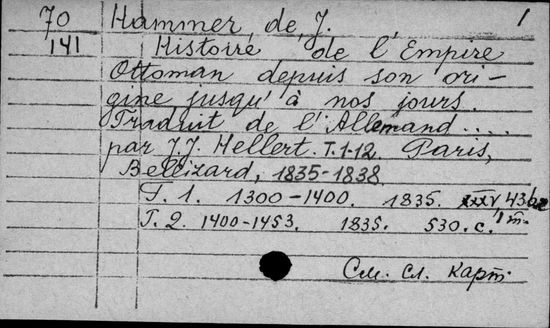 70 Hammer, de, J. 1
141 Histoire de l'Empire
Ottoman depuis son ori-
gine jusqu'à nos jours.
Traduit de l'Allemand....
par J.J. Hellert. T.1-12. Paris,
Bellizard, 1835-1838.
T. 1. 1300-1400. 1835. XXXV, 436 с.
T. 2. 1400-1453. 1835. 530. с.
См. сл. карт.